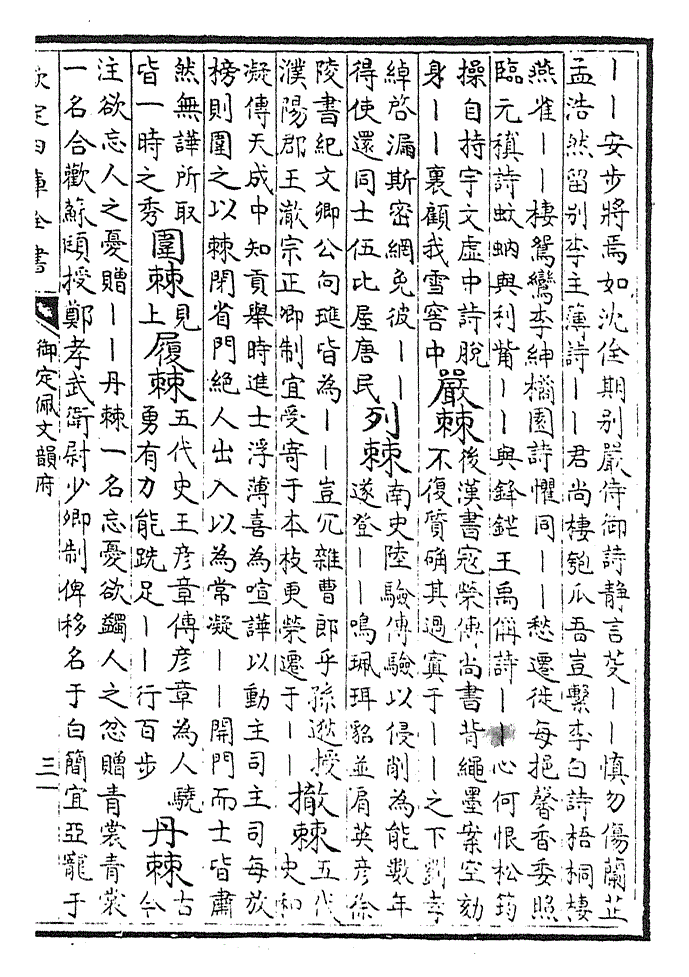 丨丨安步將焉如沈佺期别嚴侍御詩静言芟丨丨慎勿傷蘭芷
孟浩然留别李主薄詩丨丨君尚棲匏瓜吾豈繫李白詩梧桐棲
燕雀丨丨棲鴛鸞李紳橘園詩懼同丨丨愁遷徙每挹馨香委照
臨元稹詩蚊蚋與利觜丨丨與鋒鋩王禹偁詩丨丨心何恨松筠
操自持宇文虚中詩脱
身丨丨裏顧我雪窖中
嚴棘
後漢書寇榮傳尚書背繩墨案空劾
不復質确其過寘于丨丨之下劉孝
綽啓漏斯密網免彼丨丨
得使還同士伍比屋唐民
列棘
南史陸驗傳驗以侵削為能數年
遂登丨丨鳴珮珥貂並肩英彦徐
陵書紀文卿公向雖皆為丨丨豈冗雜曹郎乎孫逖授
濮陽郡王澈宗正卿制宜受寄于本枝更榮遷于丨丨
撤棘
五代
史和
凝傳天成中知貢舉時進士浮薄喜為喧譁以動主司主司每放
榜則圍之以棘閉省門絶人出入以為常凝丨丨開門而士皆肅
然無譁所取
皆一時之秀
圍棘
見
上
履棘
五代史王彦章傳彦章為人驍
勇有力能跣足丨丨行百步
丹棘
古
今
注欲忘人之憂贈丨丨丹棘一名忘憂欲蠲人之忿贈青裳青裳
一名合歡蘇頲授鄭孝武衛尉少卿制俾移名于白簡宜亞寵于
欽定四庫全書
御定佩文韻府
三一